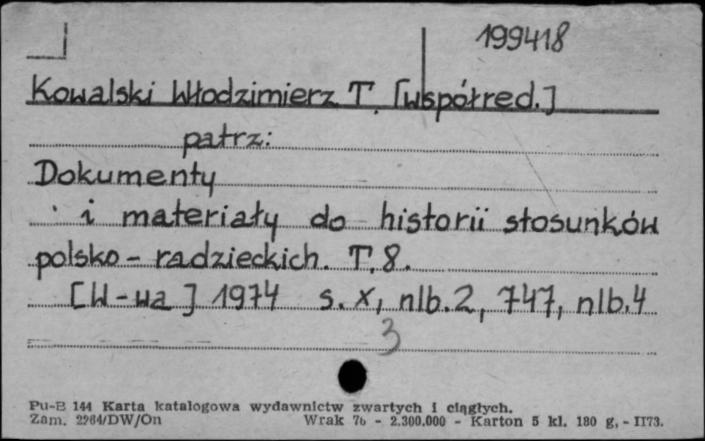 199418
Kowalski Włodzimierz T. [współred.]
patrz:
Dokumenty
i materiały do historii stosunków
polsko-radzieckich. T. 8.
[W-wa] 1974 s. X, nlb. 2, 747, nlb. 4
3
Pu-B 144 Karta katalogowa wydawnictw zwartych i ciągłych.
Zam. 2964/DW/On Wrak 76 - 2.300.000 - Karton 5 kl. 180 g, - II73.